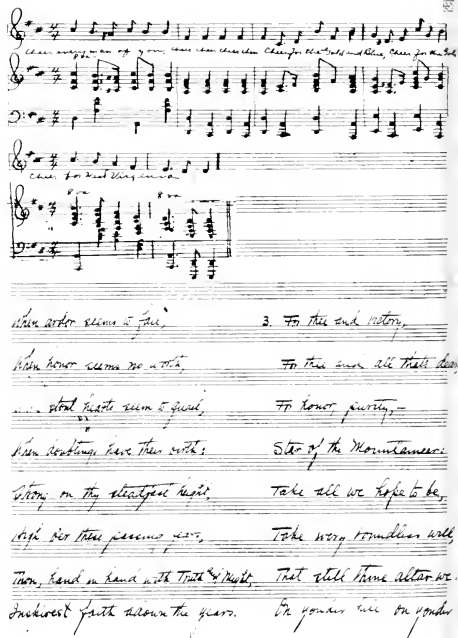 Cheer every man of you, cheer cheer cheer cheer Cheer for the Gold and Blue, Cheer for the Gold
8va
Cheer for West Virginia
8va 8va
When ardor seems to fail,
When honor seems no worth,
stout hearts seem to quail,
When doubtings have their birth:
Strong on thy steadfast height,
High o'er these passing years,
Thou, hand in hand with Truth & Might,
Inspirest faith adown the years.
3. For thee and victory,
For thee and all that's dear,
For honor, purity,—
Star of the Mountaineer:
Take all we hope to be,
Take every boundless will,
That still thine altar we
On yonder hill on yonder